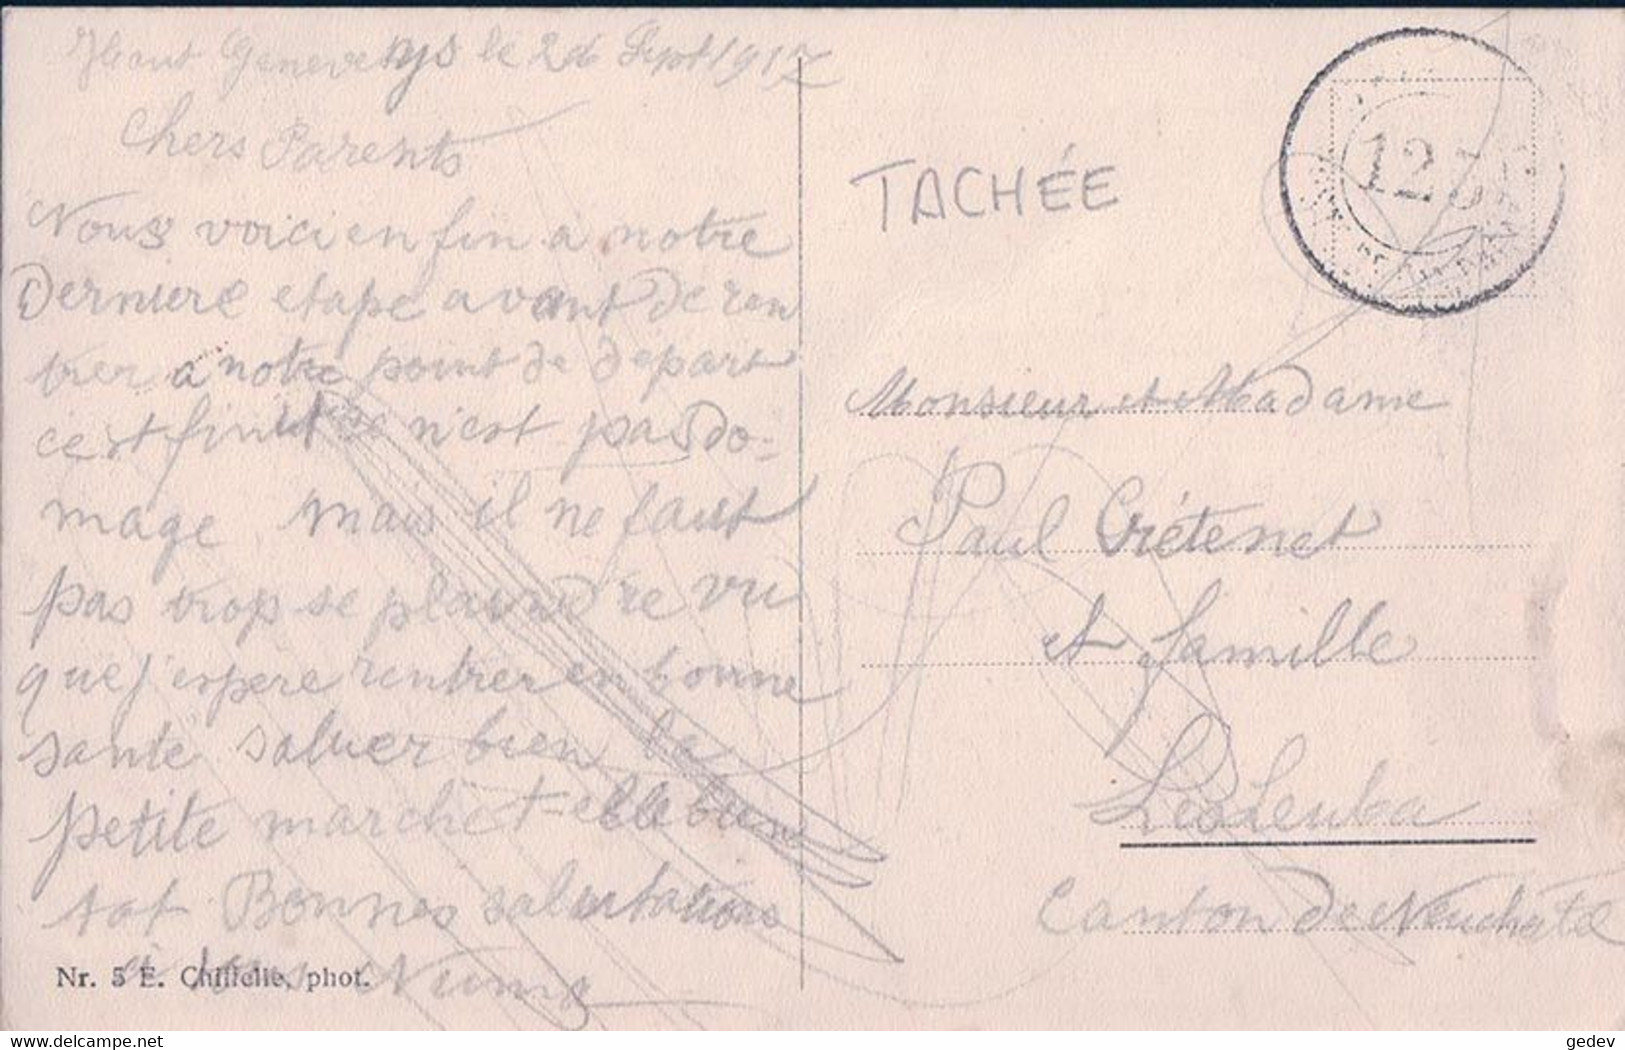 Haut Genevenys le 26 Sept 1917
Chers Parents
Nous voici enfin a notre
Derniere etape avant de ren
trer a notre point de depart
cest finit se n'est pas do-
mage, mais il ne faut
pas trop se plaindre vu
que j'espere rentrer en bonne
sante saluer bien la
petite marche t-elle bien
tot Bonnes salutations
à tous Numa
Nr. 5 E. Chiffelle, phot.
TACHÉE
125
Monsieur et Madame
Paul Crétenet
et famille
Canton de Neuchatel
delcampe.net
gedev